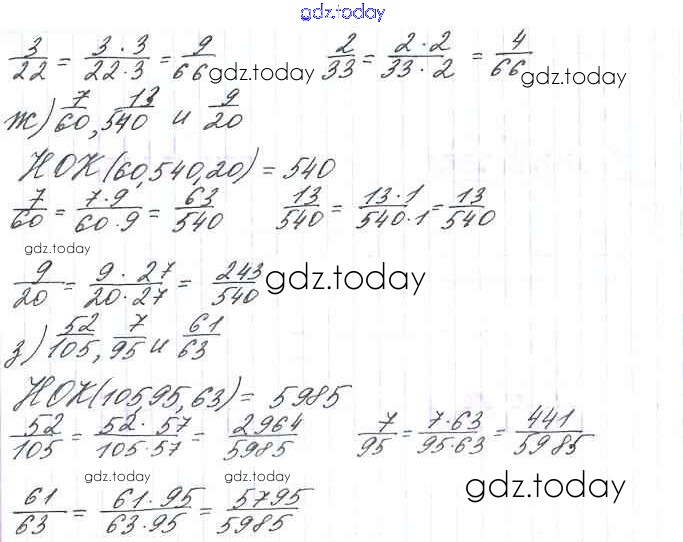 gdz.today
3/22 = 3·3/22·3 = 9/66 gdz.today 2/33 = 2·2/33·2 = 4/66 gdz.today
ж) 7/60, 13/540 и 9/20
НОК(60,540,20) = 540
7/60 = 7·9/60·9 = 63/540 13/540 = 13·1/540·1 = 13/540
gdz.today
9/20 = 9·27/20·27 = 243/540 gdz.today
з) 52/105, 7/95 и 61/63
НОК(105,95,63) = 5985
52/105 = 52·57/105·57 = 2964/5985 7/95 = 7·63/95·63 = 441/5985
gdz.today gdz.today gdz.today
61/63 = 61·95/63·95 = 5795/5985